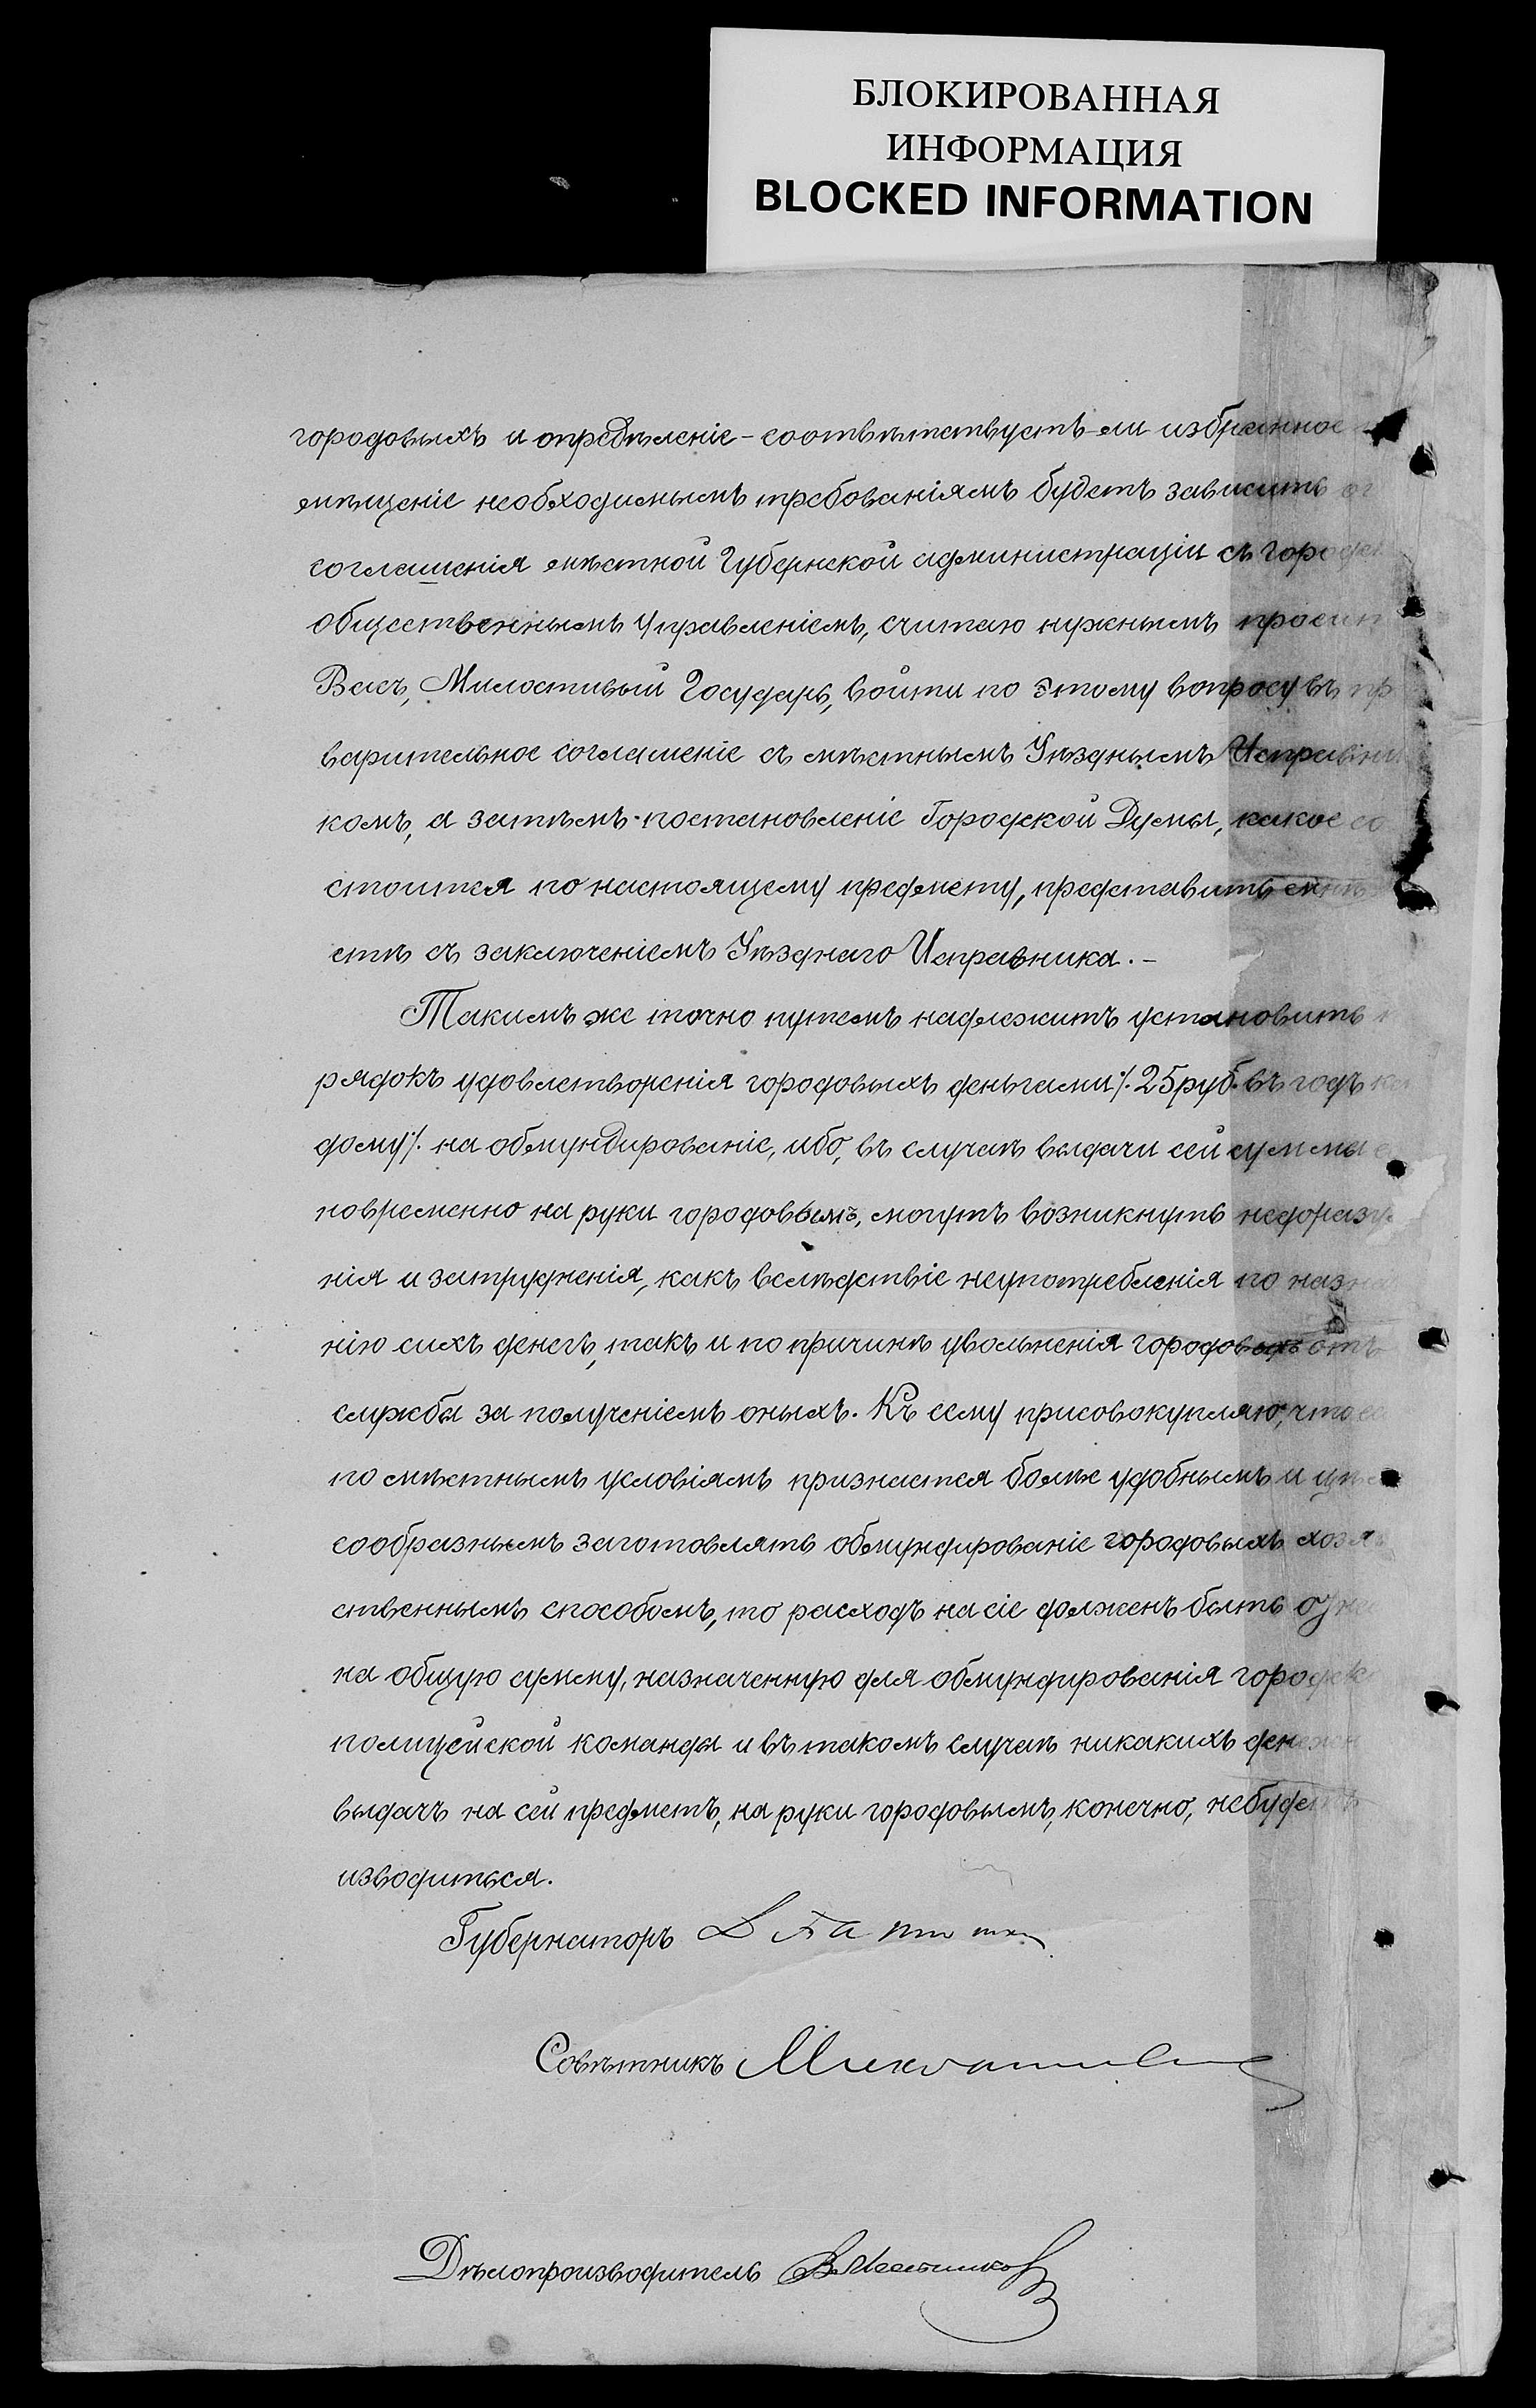 БЛОКИРОВАННАЯ
ИНФОРМАЦИЯ
BLOCKED INFORMATION
городовыхъ и опредѣленіе - соотвѣтствуетъ-ли избранное
мѣщеніе необходимымъ требованіямъ будетъ зависить от
соглашенія мѣстной Губернской администраціи съ город
общественнымъ Управленіемъ, считаю нужнымъ просит
Васъ, Милостивый Государь, войти по этому вопросу въ пр
варительное соглашеніе съ мѣстнымъ Уѣзднымъ Исправни
комъ, а затѣмъ постановленіе Городской Думы, какое со
стоится по настоящему предмету, представить мнѣ
стѣ съ заключеніемъ Уѣзднаго Исправника. -
Такимъ же точно путемъ надлежитъ установить п
рядокъ удовлетворенія городовыхъ деньгами ./. 25 руб. въ годъ ка
дому ./. на обмундированіе, ибо, въ случаѣ выдачи сей суммы е
новременно на руки городовымъ, могутъ возникнуть недоразу
нія и затрудненія, какъ вслѣдствіе неупотребленія по назна
нію сихъ денегъ, такъ и по причинѣ увольненія городовыхъ отъ
службы за полученіемъ оныхъ. Къ сему присовокупляю, что ес
по мѣстнымъ условіямъ признается болѣе удобнымъ и цѣл
сообразнымъ заготовлять обмундированіе городовыхъ хозя
ственнымъ способомъ, то расходъ на сіе долженъ быть
на общую сумму, назначенную для обмундированія городск
полицейской команды и въ такомъ случаѣ никакихъ денежн
выдачъ на сей предметъ, на руки городовымъ, конечно, не будетъ
изводиться.
Губернаторъ
Совѣтникъ
Дѣлопроизводитель